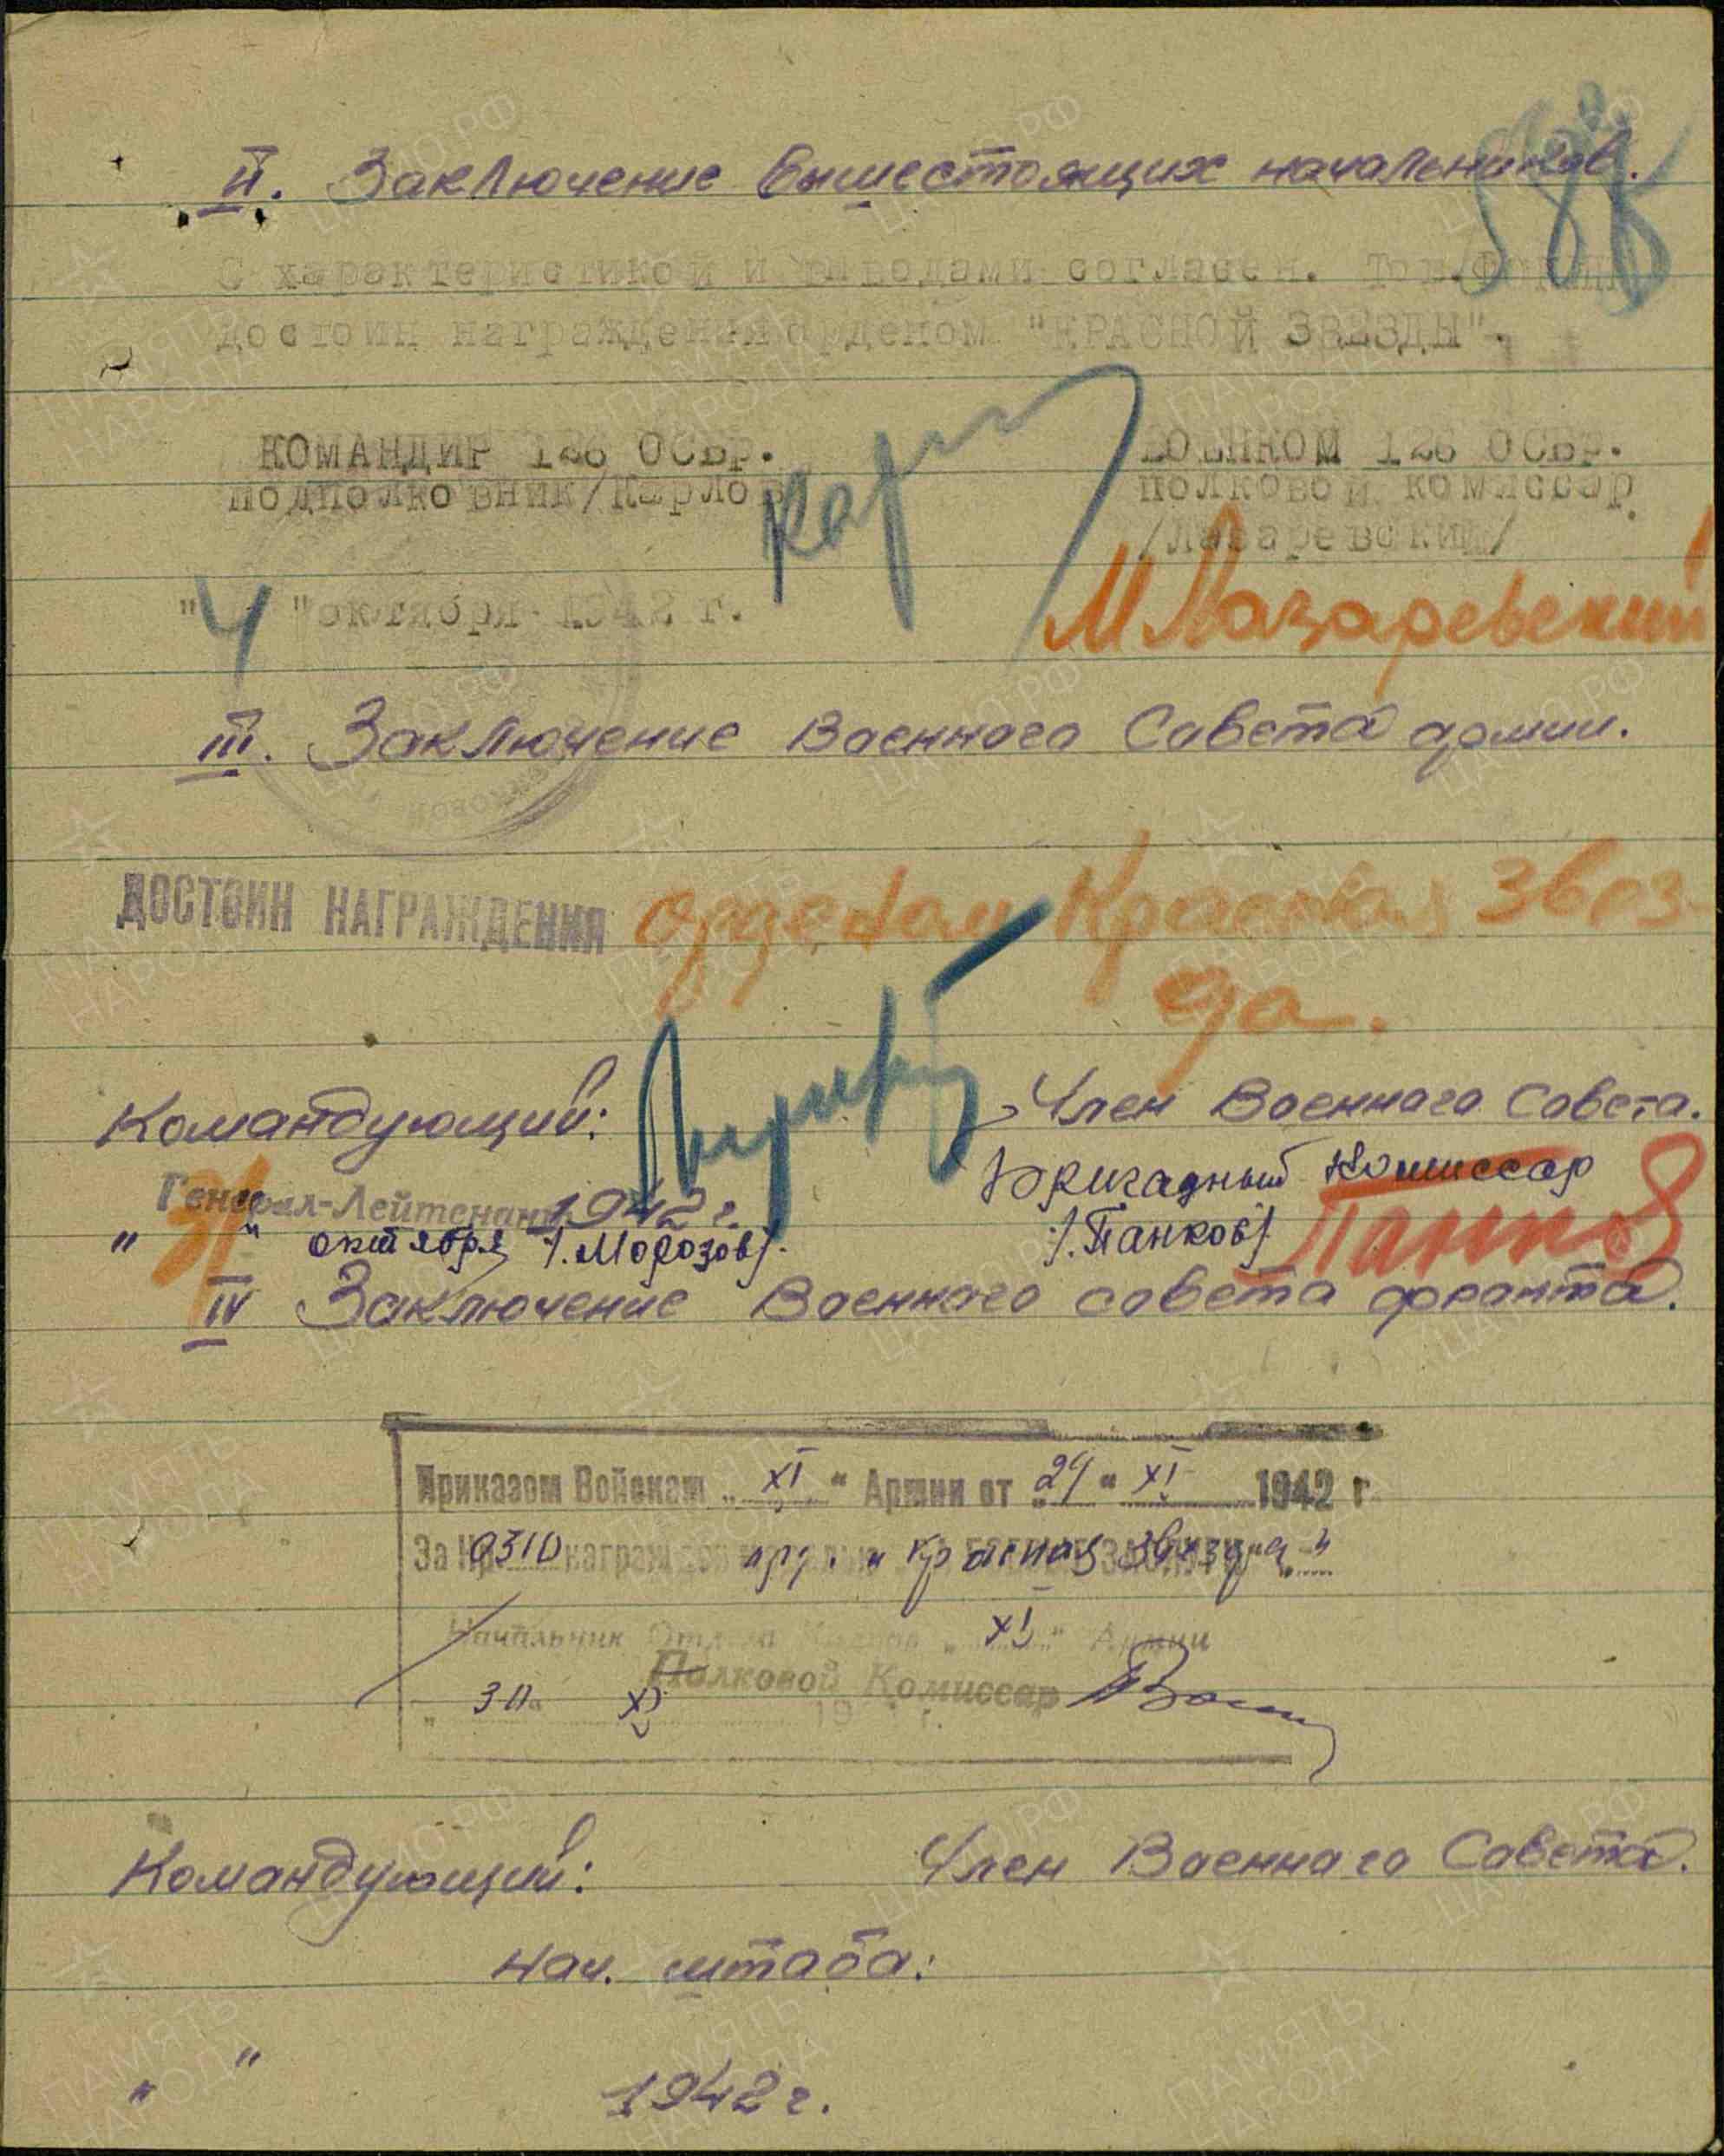 II. Заключение вышестоящих начальников.
С характеристикой и выводами согласен. Тов.
достоин награждения орденом "КРАСНОЙ ЗВЕЗДЫ".
КОМАНДИР 126 ОСБр. ВОЕНКОМ 126 ОСБр.
подполковник/Карлов полковой комиссар
/Лазаревский/
М Лазаревский
"4" октября 1942 г.
III. Заключение Военного Совета армии.
ДОСТОИН НАГРАЖДЕНИЯ орденом Красная Звез-
да.
Командующий: Член Военного Совета.
Генерал-Лейтенант 1942 г. Бригадный Комиссар
"31" октября /.Морозов/. /.Панков/. Панков
IV Заключение Военного совета фронта.
Приказом Войскам „XI" Армии от „24" XI 1942 г
За № 0310 награжден орд. „Красная звезда"
Начальник Отдела Кадров „XI" Армии
Полковой Комиссар
„30" XI 19 г.
Командующий: Член Военного Совета.
Нач. штаба:
" " 1942 г.